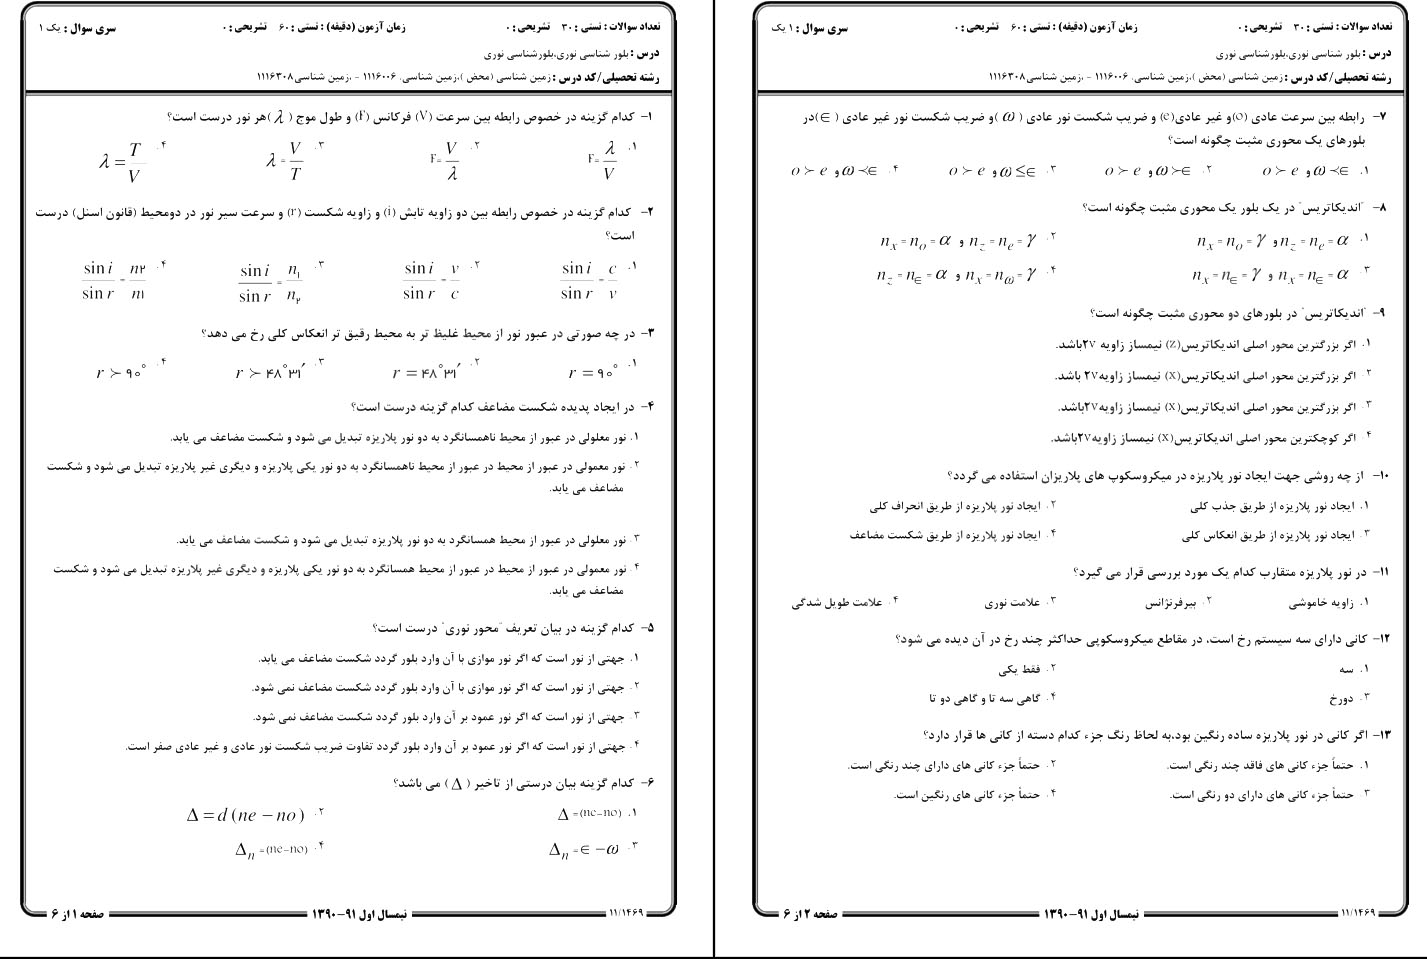 تعداد سوالات : تستی : ۳۰ تشریحی : ۰ زمان آزمون (دقیقه) : تستی : ۶۰ تشریحی : ۰ سری سوال : یک ۱
درس : بلور شناسی نوری،بلورشناسی نوری
رشته تحصیلی/کد درس : زمین شناسی (محض )،زمین شناسی، ۱۱۱۶۰۰۶ - ،زمین شناسی۱۱۱۶۳۰۸
۱- کدام گزینه در خصوص رابطه بین سرعت (V) فرکانس (F) و طول موج ( λ )هر نور درست است؟
۱. F= λ/V ۲. F= V/λ ۳. λ = V/T ۴. λ = T/V
۲- کدام گزینه در خصوص رابطه بین دو زاویه تابش (i) و زاویه شکست (r) و سرعت سیر نور در دومحیط (قانون اسنل) درست
است؟
۱. sin i / sin r = c/v ۲. sin i / sin r = v/c ۳. sin i / sin r = n۱/n۲ ۴. sin i / sin r = n۲/n۱
۳- در چه صورتی در عبور نور از محیط غلیظ تر به محیط رقیق تر انعکاس کلی رخ می دهد؟
۱. r = ۹۰° ۲. r = ۴۸°۳۱′ ۳. r ≻ ۴۸°۳۱′ ۴. r ≻ ۹۰°
۴- در ایجاد پدیده شکست مضاعف کدام گزینه درست است؟
۱. نور معلولی در عبور از محیط ناهمسانگرد به دو نور پلاریزه تبدیل می شود و شکست مضاعف می یابد.
۲. نور معمولی در عبور از محیط در عبور از محیط ناهمسانگرد به دو نور یکی پلاریزه و دیگری غیر پلاریزه تبدیل می شود و شکست
مضاعف می یابد.
۳. نور معلولی در عبور از محیط همسانگرد به دو نور پلاریزه تبدیل می شود و شکست مضاعف می یابد.
۴. نور معمولی در عبور از محیط در عبور از محیط همسانگرد به دو نور یکی پلاریزه و دیگری غیر پلاریزه تبدیل می شود و شکست
مضاعف می یابد.
۵- کدام گزینه در بیان تعریف "محور نوری" درست است؟
۱. جهتی از نور است که اگر نور موازی با آن وارد بلور گردد شکست مضاعف می یابد.
۲. جهتی از نور است که اگر نور موازی با آن وارد بلور گردد شکست مضاعف نمی شود.
۳. جهتی از نور است که اگر نور عمود بر آن وارد بلور گردد شکست مضاعف نمی شود.
۴. جهتی از نور است که اگر نور عمود بر آن وارد بلور گردد تفاوت ضریب شکست نور عادی و غیر عادی صفر است.
۶- کدام گزینه بیان درستی از تاخیر ( Δ ) می باشد؟
۱. Δ =(ne-no) ۲. Δ = d (ne − no)
۳. Δn =∈ −ω ۴. Δn =(ne-no)
۱۱/۱۴۶۹ نیمسال اول ۹۱-۱۳۹۰ صفحه ۱ از ۶
تعداد سوالات : تستی : ۳۰ تشریحی : ۰ زمان آزمون (دقیقه) : تستی : ۶۰ تشریحی : ۰ سری سوال : ۱ یک
درس : بلور شناسی نوری،بلورشناسی نوری
رشته تحصیلی/کد درس : زمین شناسی (محض )،زمین شناسی، ۱۱۱۶۰۰۶ - ،زمین شناسی۱۱۱۶۳۰۸
۷- رابطه بین سرعت عادی (o)و غیر عادی(e) و ضریب شکست نور عادی ( ω )و ضریب شکست نور غیر عادی ( ∈ )در
بلورهای یک محوری مثبت چگونه است؟
۱. ω ≺∈ و o ≻ e ۲. ω≻∈ و o ≻ e ۳. ω ≤∈ و o ≻ e ۴. ω ≺∈ و o ≻ e
۸- "اندیکاتریس" در یک بلور یک محوری مثبت چگونه است؟
۱. nz = ne = α و nx = no = γ ۲. nz = ne = γ و nx = no = α
۳. nx = n∈ = α و nx = n∈ = γ ۴. nx = nω = γ و nz = n∈ = α
۹- "اندیکاتریس" در بلورهای دو محوری مثبت چگونه است؟
۱. اگر بزرگترین محور اصلی اندیکاتریس(Z) نیمساز زاویه ۲Vباشد.
۲. اگر بزرگترین محور اصلی اندیکاتریس(X) نیمساز زاویه۲V باشد.
۳. اگر بزرگترین محور اصلی اندیکاتریس(X) نیمساز زاویه۲Vباشد.
۴. اگر کوچکترین محور اصلی اندیکاتریس(X) نیمساز زاویه۲Vباشد.
۱۰- از چه روشی جهت ایجاد نور پلاریزه در میکروسکوپ های پلاریزان استفاده می گردد؟
۱. ایجاد نور پلاریزه از طریق جذب کلی ۲. ایجاد نور پلاریزه از طریق انحراف کلی
۳. ایجاد نور پلاریزه از طریق انعکاس کلی ۴. ایجاد نور پلاریزه از طریق شکست مضاعف
۱۱- در نور پلاریزه متقارب کدام یک مورد بررسی قرار می گیرد؟
۱. زاویه خاموشی ۲. بیرفرنژانس ۳. علامت نوری ۴. علامت طویل شدگی
۱۲- کانی دارای سه سیستم رخ است، در مقاطع میکروسکوپی حداکثر چند رخ در آن دیده می شود؟
۱. سه ۲. فقط یکی
۳. دورخ ۴. گاهی سه تا و گاهی دو تا
۱۳- اگر کانی در نور پلاریزه ساده رنگین بود،به لحاظ رنگ جزء کدام دسته از کانی ها قرار دارد؟
۱. حتماً جزء کانی های فاقد چند رنگی است. ۲. حتماً جزء کانی های دارای چند رنگی است.
۳. حتماً جزء کانی های دارای دو رنگی است. ۴. حتماً جزء کانی های رنگین است.
۱۱/۱۴۶۹ نیمسال اول ۹۱-۱۳۹۰ صفحه ۲ از ۶